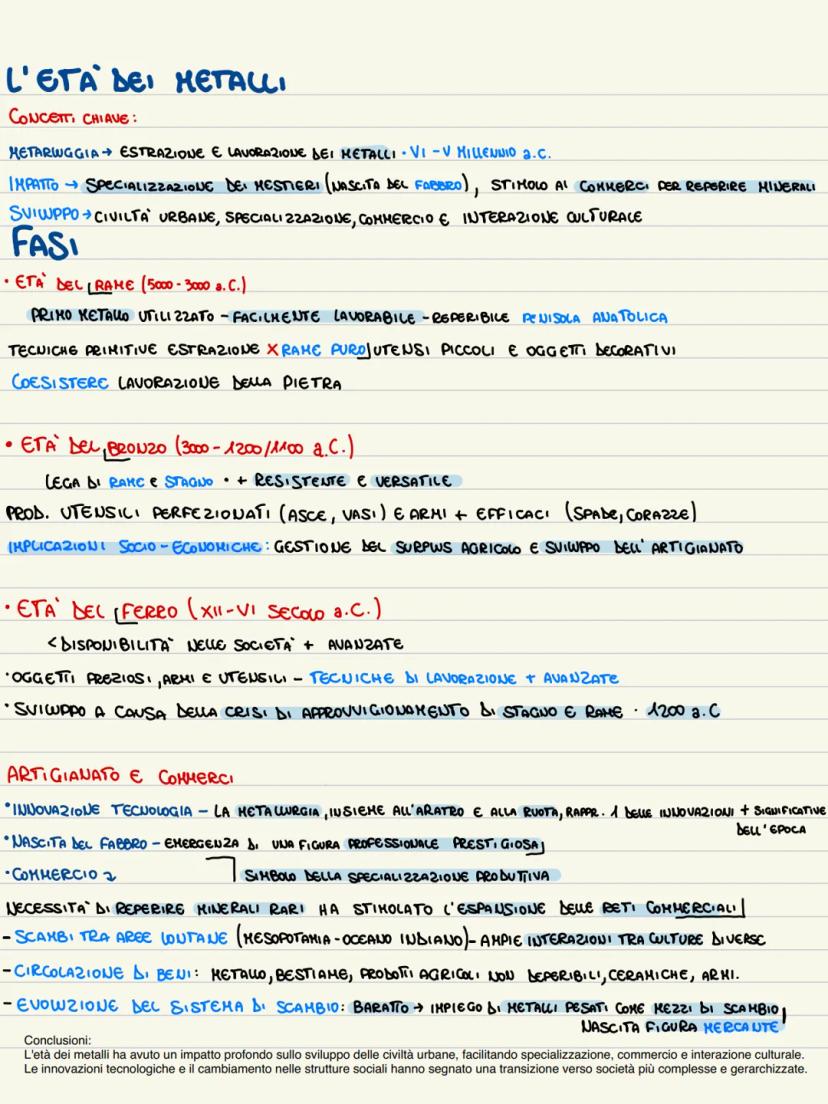 L'ETÀ DEI METALLI
CONCETTI CHIAVE:
METARLUGGIA → ESTRAZIONE E LAVORAZIONE DEI METALLI · VI - V MILLENNIO a.C.
IMPATTO → SPECIALIZZAZIONE DEI MESTIERI (NASCITA DEL FABBRO), STIMOLO AI COMMERCI PER REPERIRE MINERALI
SVILUPPO → CIVILTÀ URBANE, SPECIALIZZAZIONE, COMMERCIO E INTERAZIONE CULTURALE
FASI
· ETÀ DEL RAME (5000 - 3000 a.C.)
PRIMO METALLO UTILIZZATO - FACILMENTE LAVORABILE - REPERIBILE PENISOLA ANATOLICA
TECNICHE PRIMITIVE ESTRAZIONE X RAME PURO UTENSI PICCOLI E OGGETTI DECORATIVI
COESISTERE LAVORAZIONE DELLA PIETRA
· ETÀ DEL BRONZO (3000 - 1200/1100 a.C.)
LEGA DI RAME E STAGNO · + RESISTENTE E VERSATILE
PROD. UTENSILI PERFEZIONATI (ASCE, VASI) E ARMI + EFFICACI (SPADE, CORAZZE)
IMPLICAZIONI SOCIO - ECONOMICHE: GESTIONE DEL SURPLUS AGRICOLO E SVILUPPO DELL'ARTIGIANATO
· ETÀ DEL FERRO (XII - VI SECOLO a.C.)
< DISPONIBILITÀ NELLE SOCIETÀ + AVANZATE
· OGGETTI PREZIOSI, ARMI E UTENSILI - TECNICHE DI LAVORAZIONE + AVANZATE
· SVILUPPO A CAUSA DELLA CRISI DI APPROVVIGIONAMENTO DI STAGNO E RAME · 1200 a.C
ARTIGIANATO E COMMERCI
· INNOVAZIONE TECNOLOGIA - LA METALLURGIA, INSIEME ALL'ARATRO E ALLA RUOTA, RAPPR. 1 DELLE INNOVAZIONI + SIGNIFICATIVE
DELL'EPOCA
· NASCITA DEL FABBRO - EMERGENZA DI UNA FIGURA PROFESSIONALE PRESTIGIOSA
· COMMERCIO SIMBOLO DELLA SPECIALIZZAZIONE PRODUTTIVA
NECESSITÀ DI REPERIRE MINERALI RARI HA STIMOLATO L'ESPANSIONE DELLE RETI COMMERCIALI
- SCAMBI TRA AREE LONTANE (MESOPOTAMIA - OCEANO INDIANO) - AMPIE INTERAZIONI TRA CULTURE DIVERSE
- CIRCOLAZIONE DI BENI: METALLO, BESTIAME, PRODOTTI AGRICOLI NON DEPERIBILI, CERAMICHE, ARMI.
- EVOLUZIONE DEL SISTEMA DI SCAMBIO: BARATTO → IMPIEGO DI METALLI PESATI COME MEZZI DI SCAMBIO,
NASCITA FIGURA MERCANTE
Conclusioni:
L'età dei metalli ha avuto un impatto profondo sullo sviluppo delle civiltà urbane, facilitando specializzazione, commercio e interazione culturale.
Le innovazioni tecnologiche e il cambiamento nelle strutture sociali hanno segnato una transizione verso società più complesse e gerarchizzate.